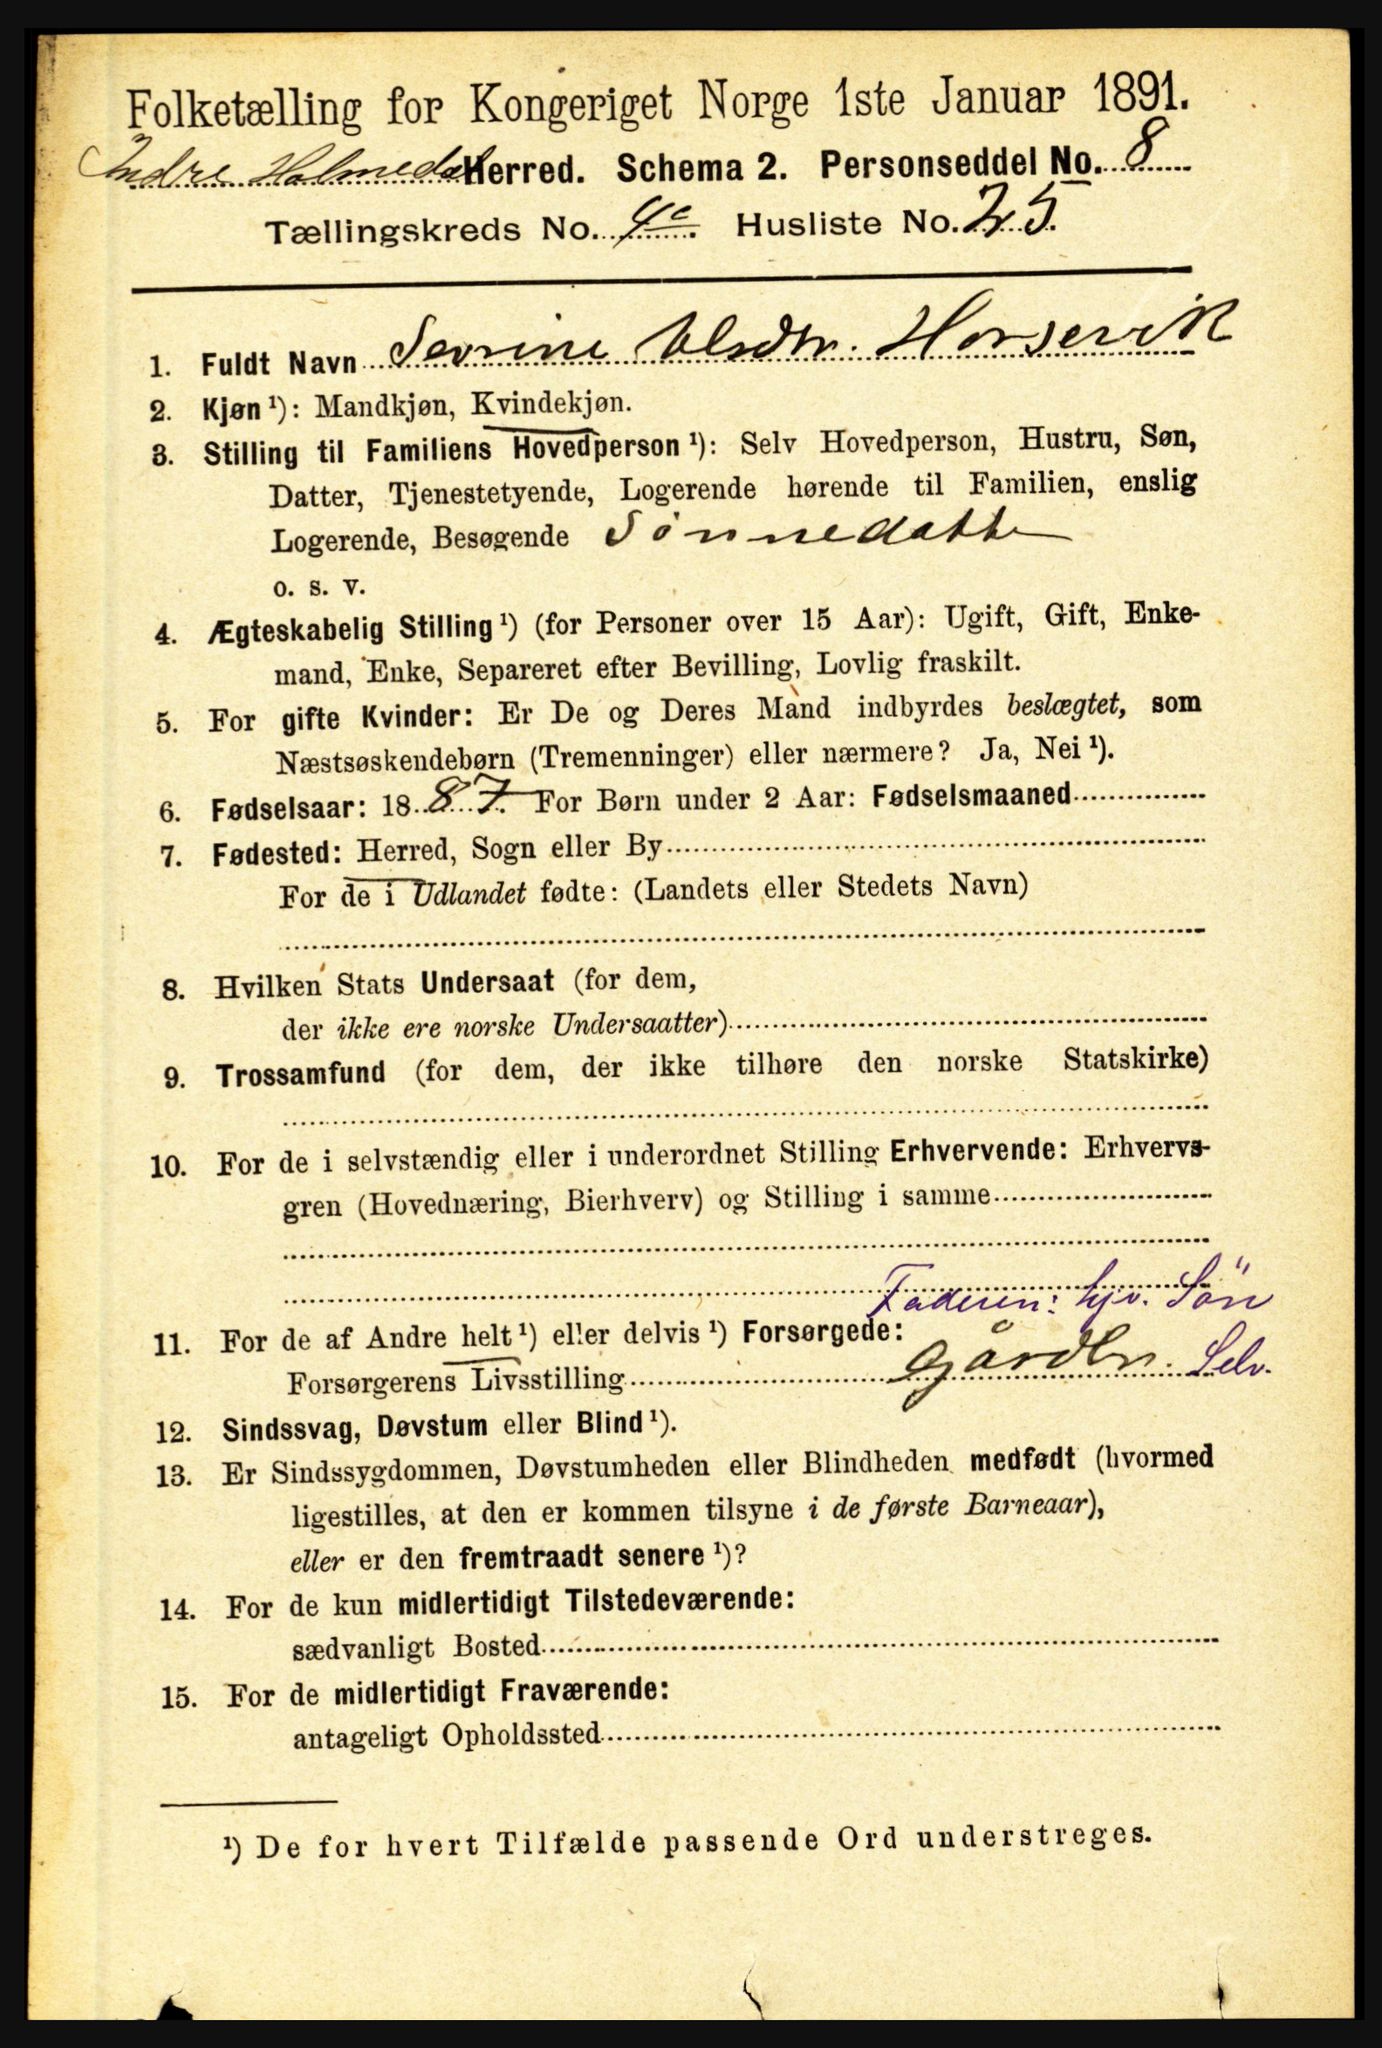 Folketælling for Kongeriget Norge 1ste Januar 1891.
Indre Holmedal Herred. Schema 2. Personseddel No. 8
Tællingskreds No. 4c. Husliste No. 25.
1. Fuldt Navn Sevrine Olsdtr. Horsevik
2. Kjøn ¹): Mandkjøn, Kvindekjøn.
3. Stilling til Familiens Hovedperson ¹): Selv Hovedperson, Hustru, Søn,
Datter, Tjenestetyende, Logerende hørende til Familien, enslig
Logerende, Besøgende Sønnedatter
o. s. v.
4. Ægteskabelig Stilling ¹) (for Personer over 15 Aar): Ugift, Gift, Enke-
mand, Enke, Separeret efter Bevilling, Lovlig fraskilt.
5. For gifte Kvinder: Er De og Deres Mand indbyrdes beslægtet, som
Næstsøskendebørn (Tremenninger) eller nærmere? Ja, Nei ¹).
6. Fødselsaar: 1887. For Børn under 2 Aar: Fødselsmaaned
7. Fødested: Herred, Sogn eller By
For de i Udlandet fødte: (Landets eller Stedets Navn)
8. Hvilken Stats Undersaat (for dem,
der ikke ere norske Undersaatter)
9. Trossamfund (for dem, der ikke tilhøre den norske Statskirke)
10. For de i selvstændig eller i underordnet Stilling Erhvervende: Erhvervs-
gren (Hovednæring, Bierhverv) og Stilling i samme
Faderen: hjv. Sön
11. For de af Andre helt ¹) eller delvis ¹) Forsørgede:
Forsørgerens Livsstilling Gårdbr. Selv.
12. Sindssvag, Døvstum eller Blind ¹).
13. Er Sindssygdommen, Døvstumheden eller Blindheden medfødt (hvormed
ligestilles, at den er kommen tilsyne i de første Barneaar),
eller er den fremtraadt senere ¹)?
14. For de kun midlertidigt Tilstedeværende:
sædvanligt Bosted
15. For de midlertidigt Fraværende:
antageligt Opholdssted
¹) De for hvert Tilfælde passende Ord understreges.